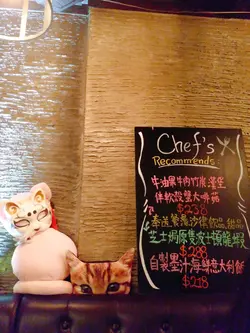 Chef's
Recommends
牛油果牛肉竹炭漢堡
伴軟殼蟹大啡菇
$238
奉送繁鬼沙律飲品甜品
芝士焗原隻波士頓龍蝦
$288
自製墨汁海鮮意大利飯
$218